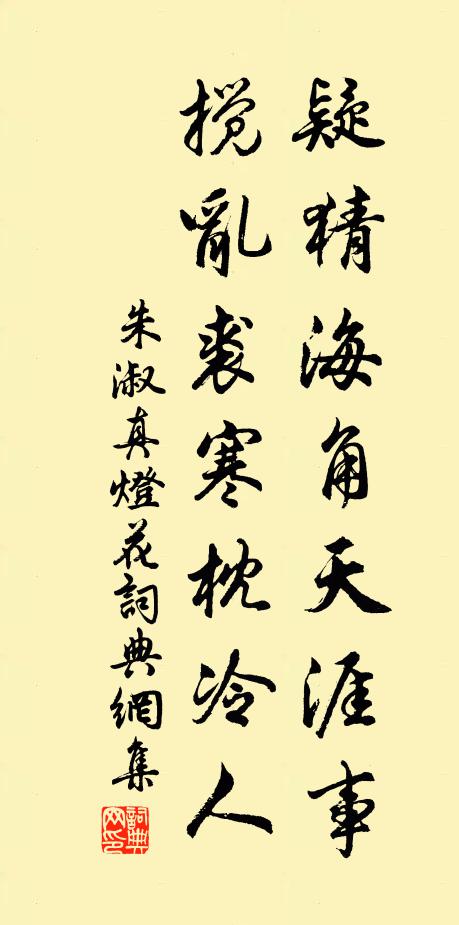 疑猜海角天涯事
搅亂裘寒枕冷人
朱淑真燈花詞典網集
詞典网印